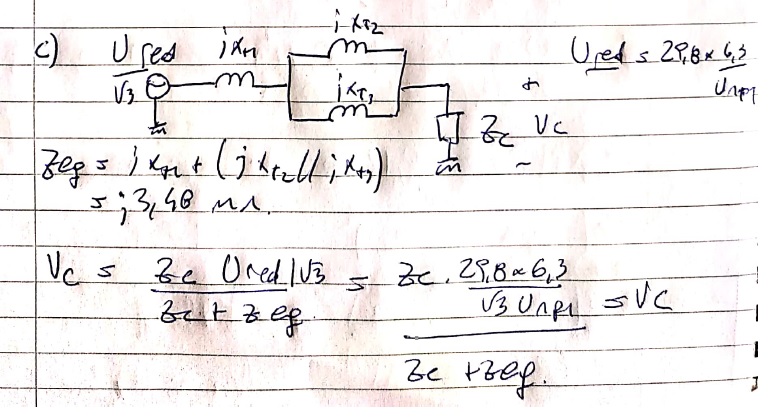 c) U red / √3 jXT1 jXT2 jXT3 Zc Vc
U red = 29,8 × 6,3 / Unp1
Zeq = jXT1 + (jXT2 // jXT3)
= j3,48 mΩ.
Vc = Zc Ured/√3 / Zc + Zeq = Zc . 29,8 × 6,3 / √3 Unp1 = Vc
Zc + Zeq.